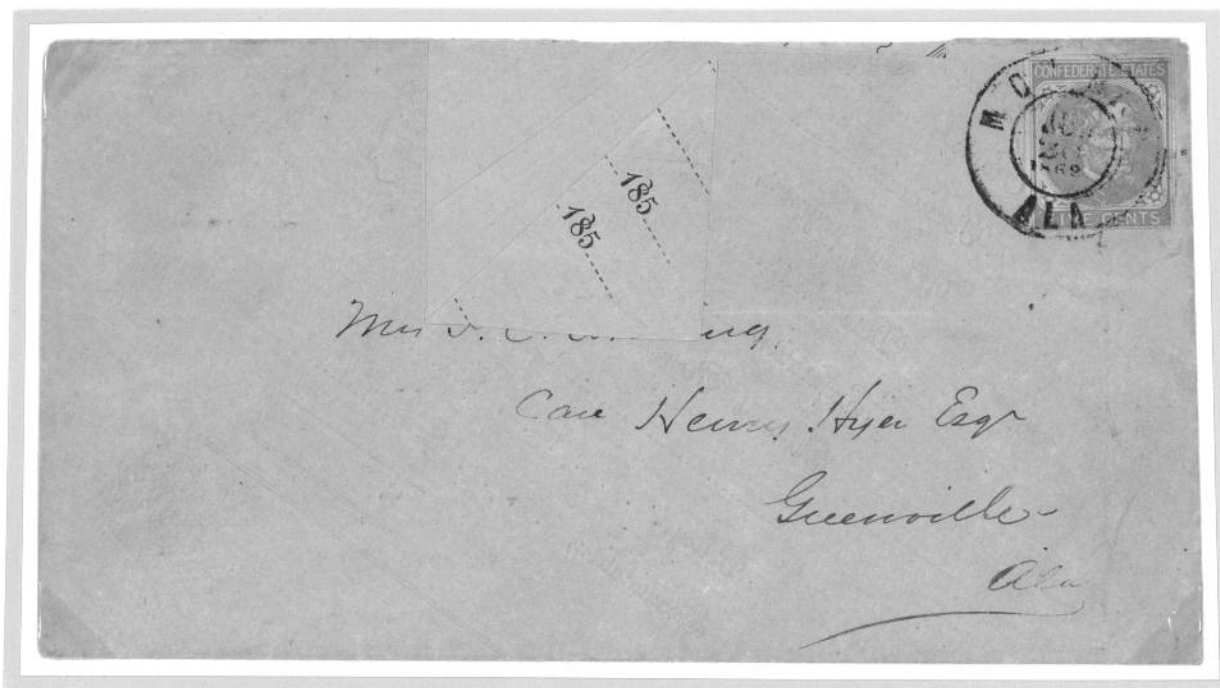 CONFEDERATE STATES
M O
ALA
CENTS
185
185
Care Henry Hyer Esqr
Greenville
Ala